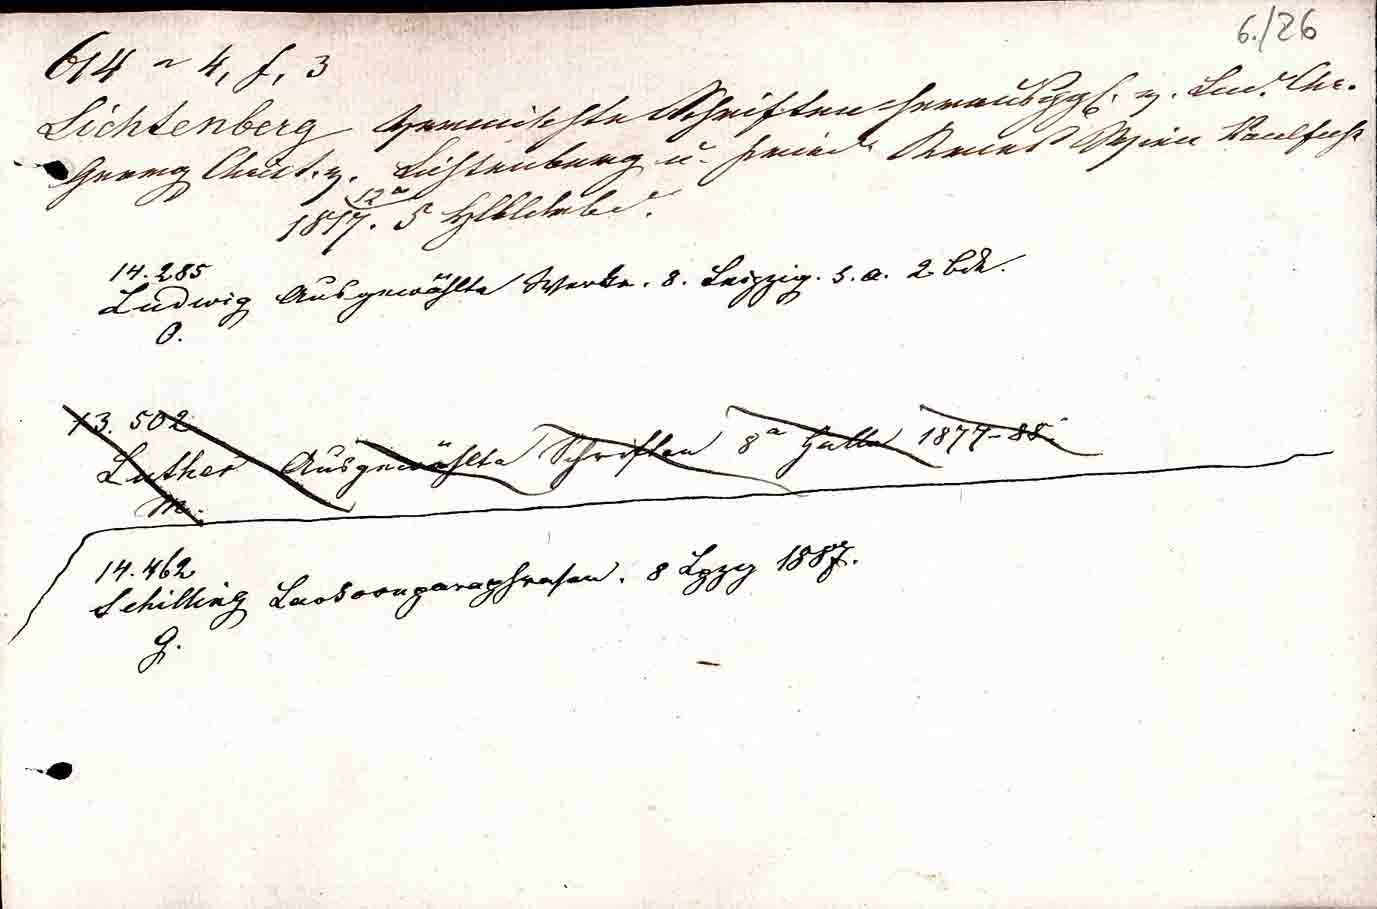 6./26
614 ~ 4, f, 3
Lichtenberg Vermischte Schriften herausggb. v. Lud. Chr.
Georg Christ. v. Lichtenberg u. Fried. Kries Wien
12°
1817. 5 Hldrbd.
14.285
Ludwig Ausgewählte Werke. 8. Leipzig. s. a. 2 bde.
O.
13.502
Luther Ausgewählte Schriften 8° Halle 1877-88.
M.
14.462
Schilling Laokoonparaphrasen. 8 Lpzg 1887.
G.